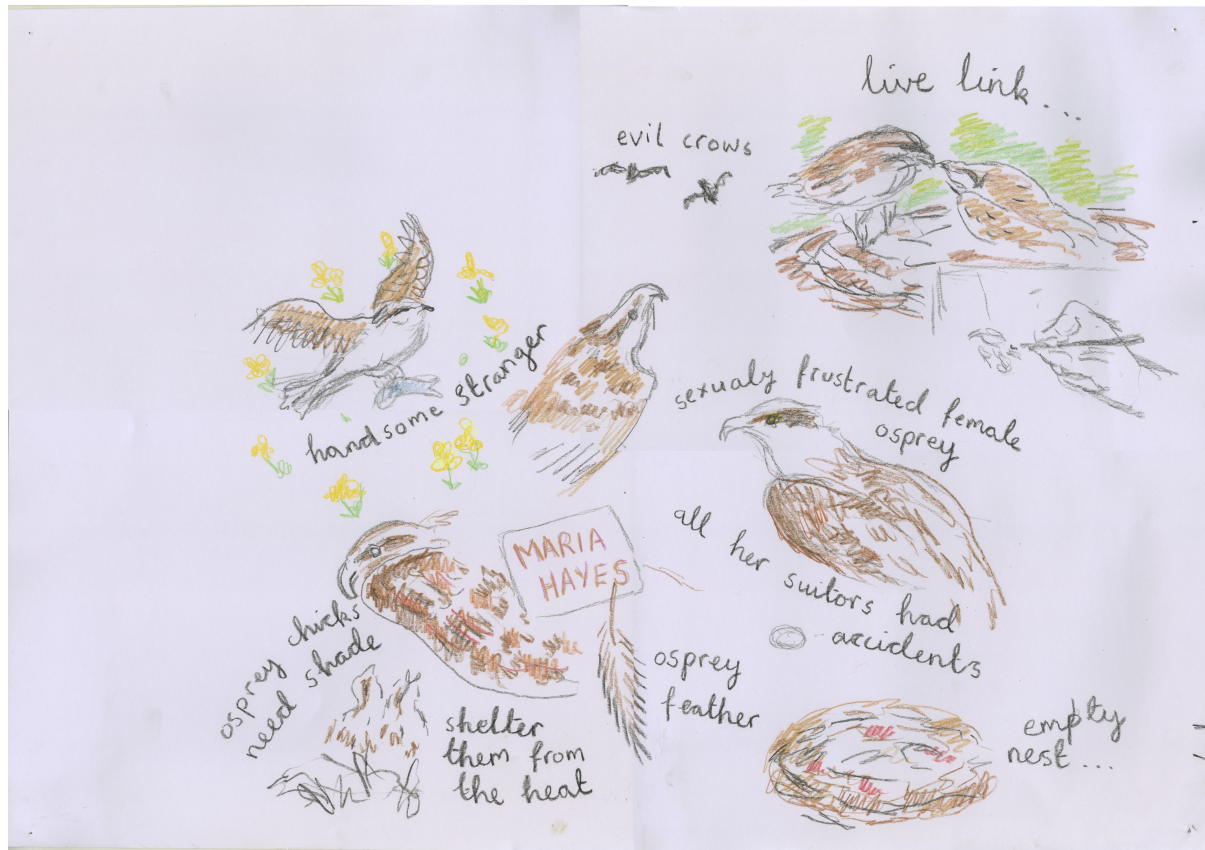 live link...
evil crows
handsome stranger
sexualy frustrated female
osprey
all her suitors had
accidents
MARIA
HAYES
osprey chicks
need shade
shelter
them from
the heat
osprey
feather
empty
nest....